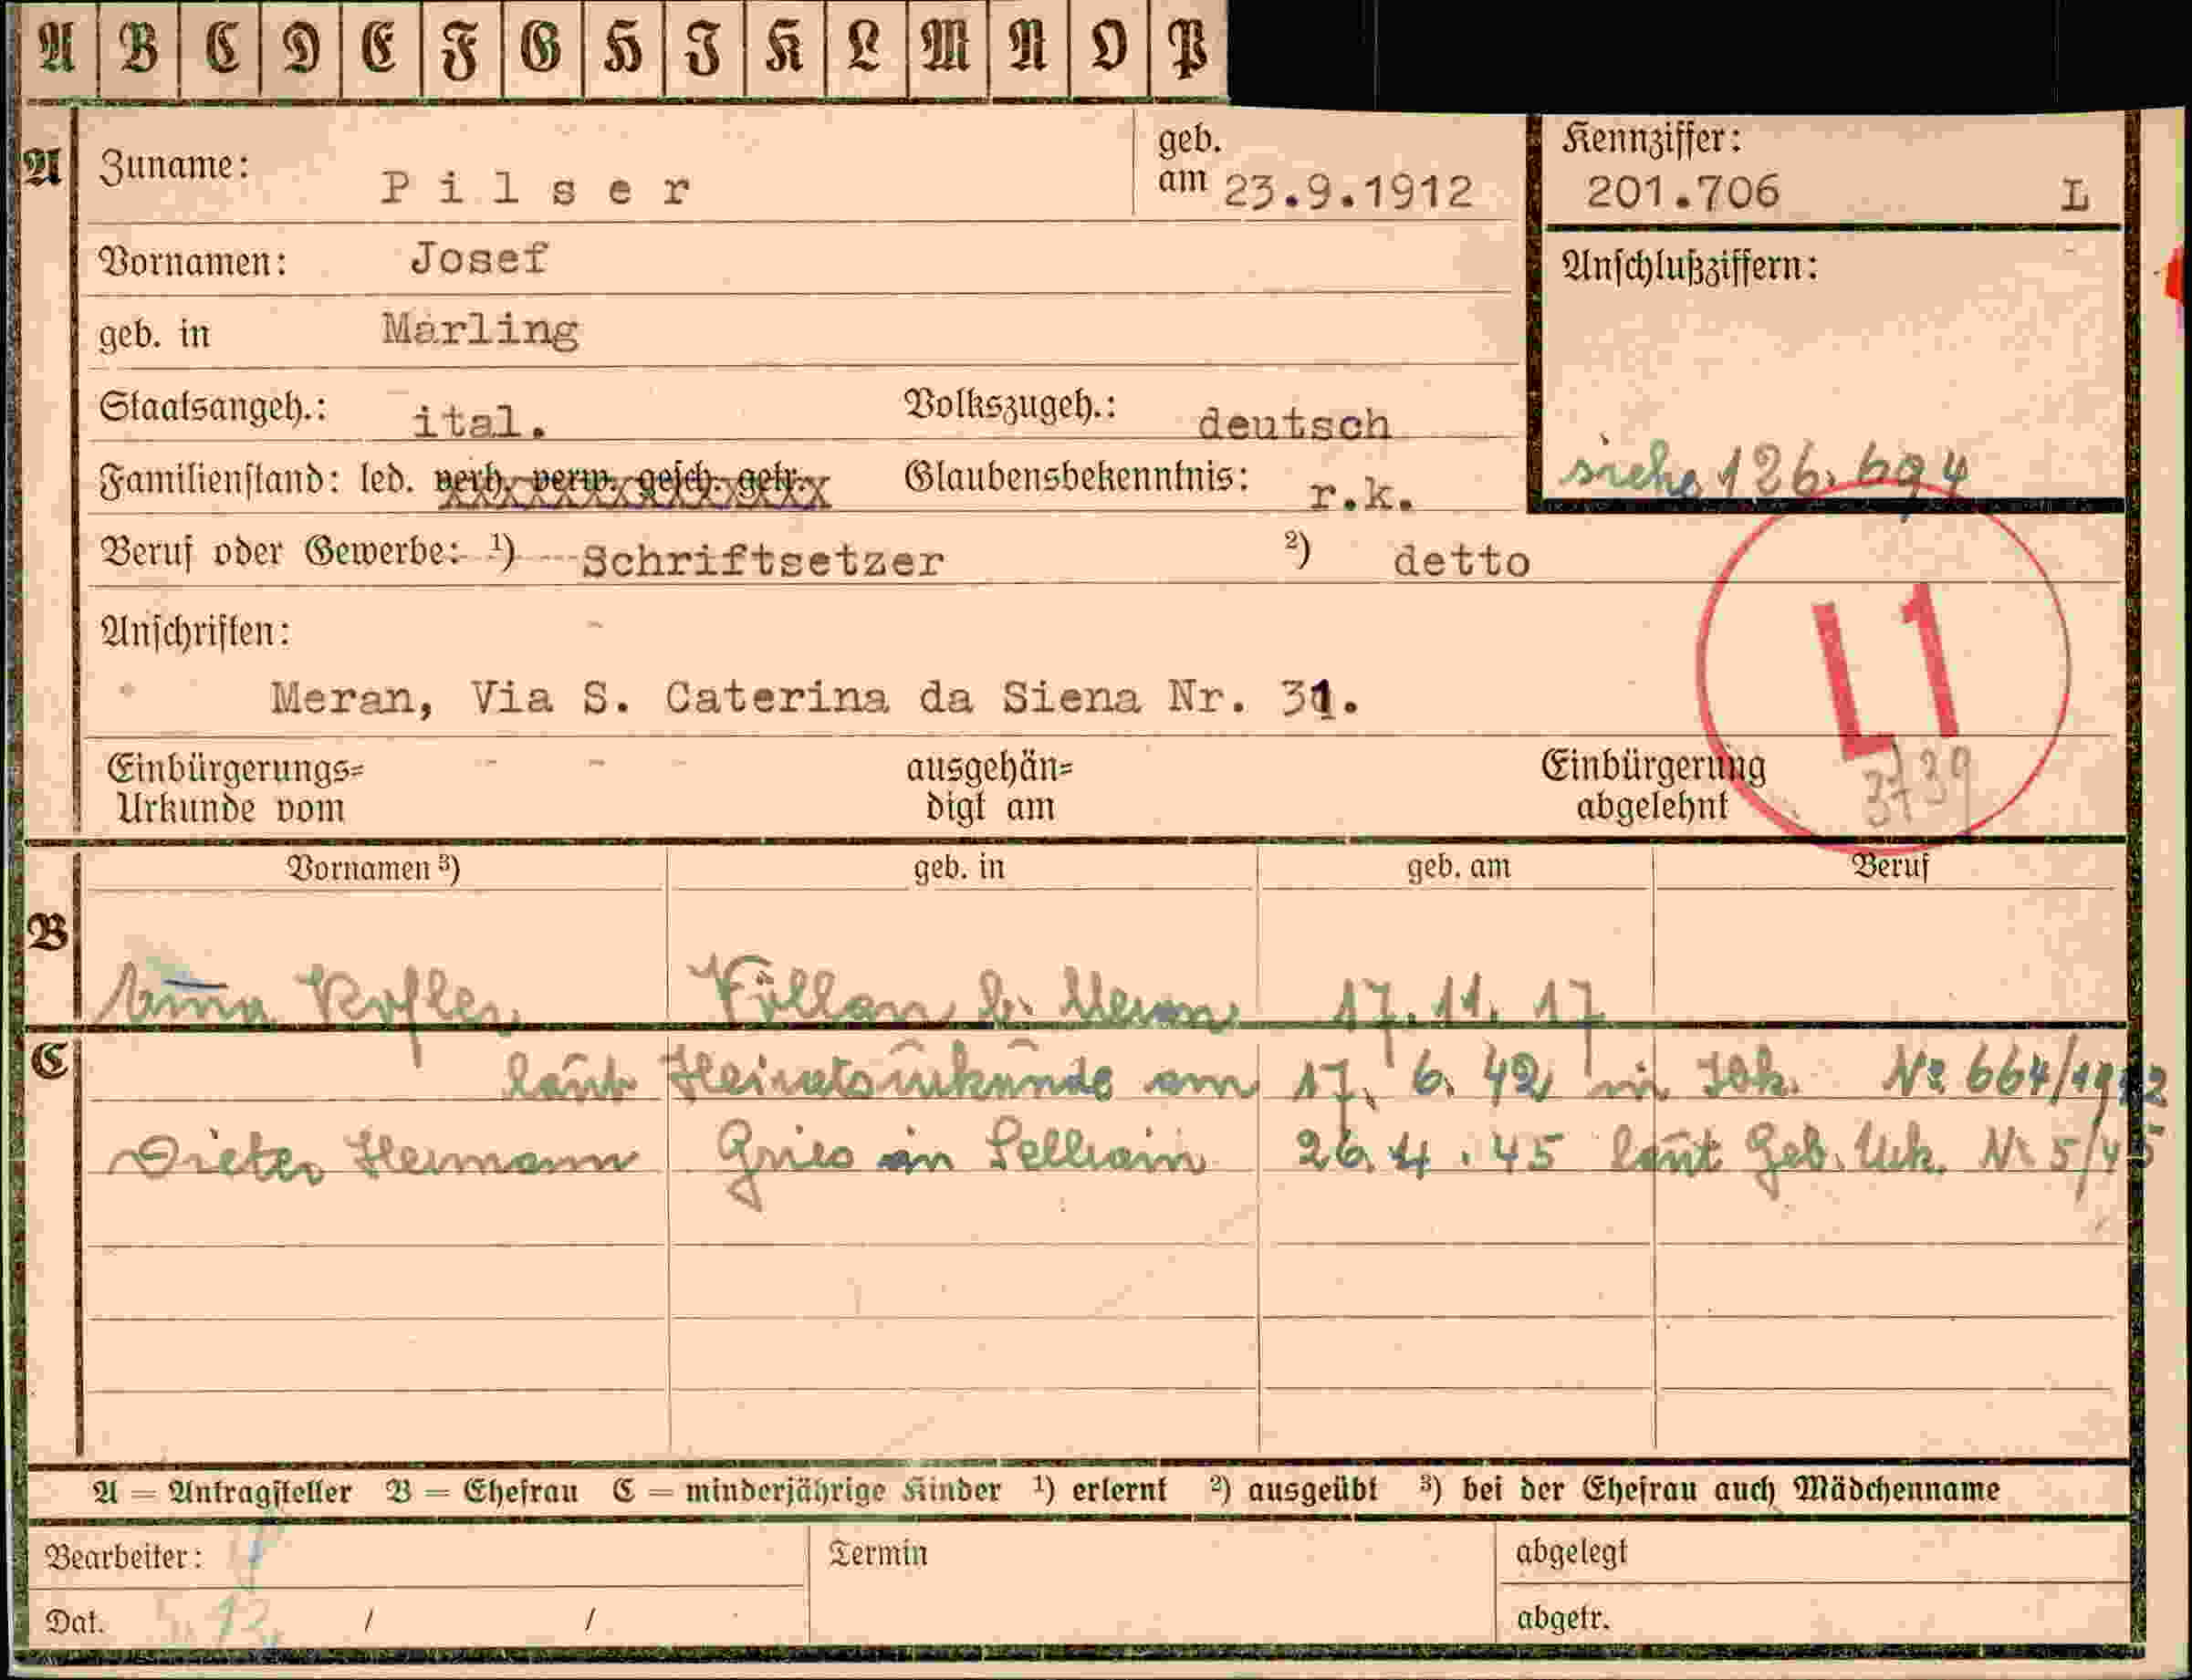 A B C D E F G H I K L M N O P
A Zuname: Pilser geb. am 23.9.1912 Kennziffer: 201.706 L
Vornamen: Josef Anschlußziffern:
geb. in Marling
Staatsangeh.: ital. Volkszugeh.: deutsch
siehe 126.694
Familienstand: led. verh. verw. gesch. getr. Glaubensbekenntnis: r.k.
Beruf oder Gewerbe: ¹) Schriftsetzer ²) detto
Anschriften:
L1
Meran, Via S. Caterina da Siena Nr. 31.
Einbürgerungs= ausgehän= Einbürgerung 3739
Urkunde vom digt am abgelehnt
Vornamen ³) geb. in geb. am Beruf
B
Anna Kofler Völlan b. Meran 17.11.17
C
laut Heiratsurkunde am 17. 6. 42 in Ibk. Nr 664/1942
Dieter Hermann Gries in Sellrain 26.4.45 laut Geb. Urk. Nr 5/45
A = Antragsteller B = Ehefrau C = minderjährige Kinder ¹) erlernt ²) ausgeübt ³) bei der Ehefrau auch Mädchenname
Bearbeiter: Termin abgelegt
Dat. / / abgetr.